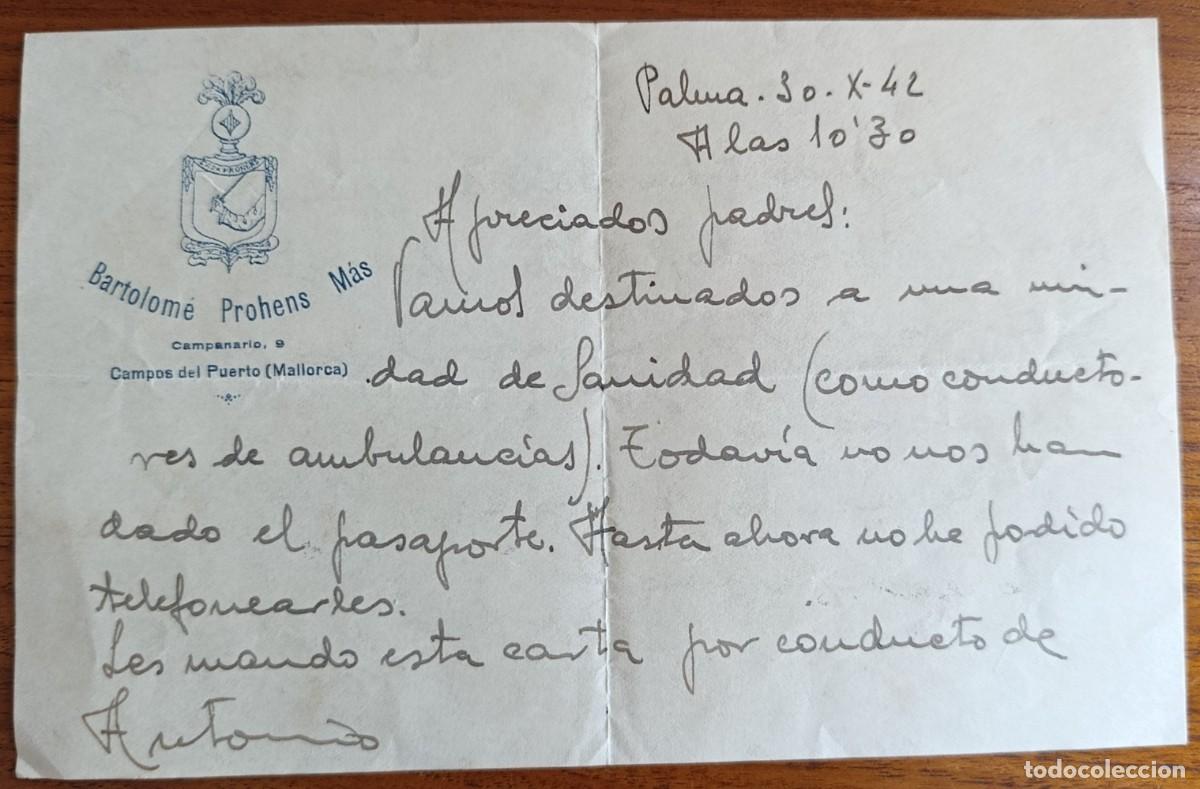 Palma. 30. X-42
A las 10'30
Apreciados padres:
Bartolomé Prohens Más
Campanario, 9
Campos del Puerto (Mallorca)
Vamos destinados a una uni-
dad de Sanidad (como conducto-
res de ambulancias). Todavía no nos han
dado el pasaporte. Hasta ahora no he podido
telefonearles.
Les mando esta carta por conducto de
Antonio
todocoleccion